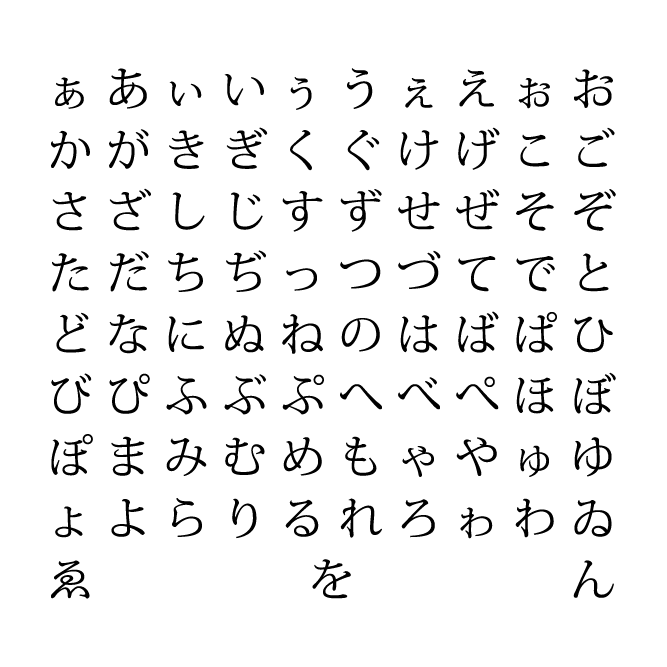 ぁあぃいぅうぇえぉお
かがきぎくぐけげこご
さざしじすずせぜそぞ
ただちぢっつづてでと
どなにぬねのはばぱひ
びぴふぶぷへべぺほぼ
ぽまみむめもゃやゅゆ
ょよらりるれろゎわゐ
ゑをん